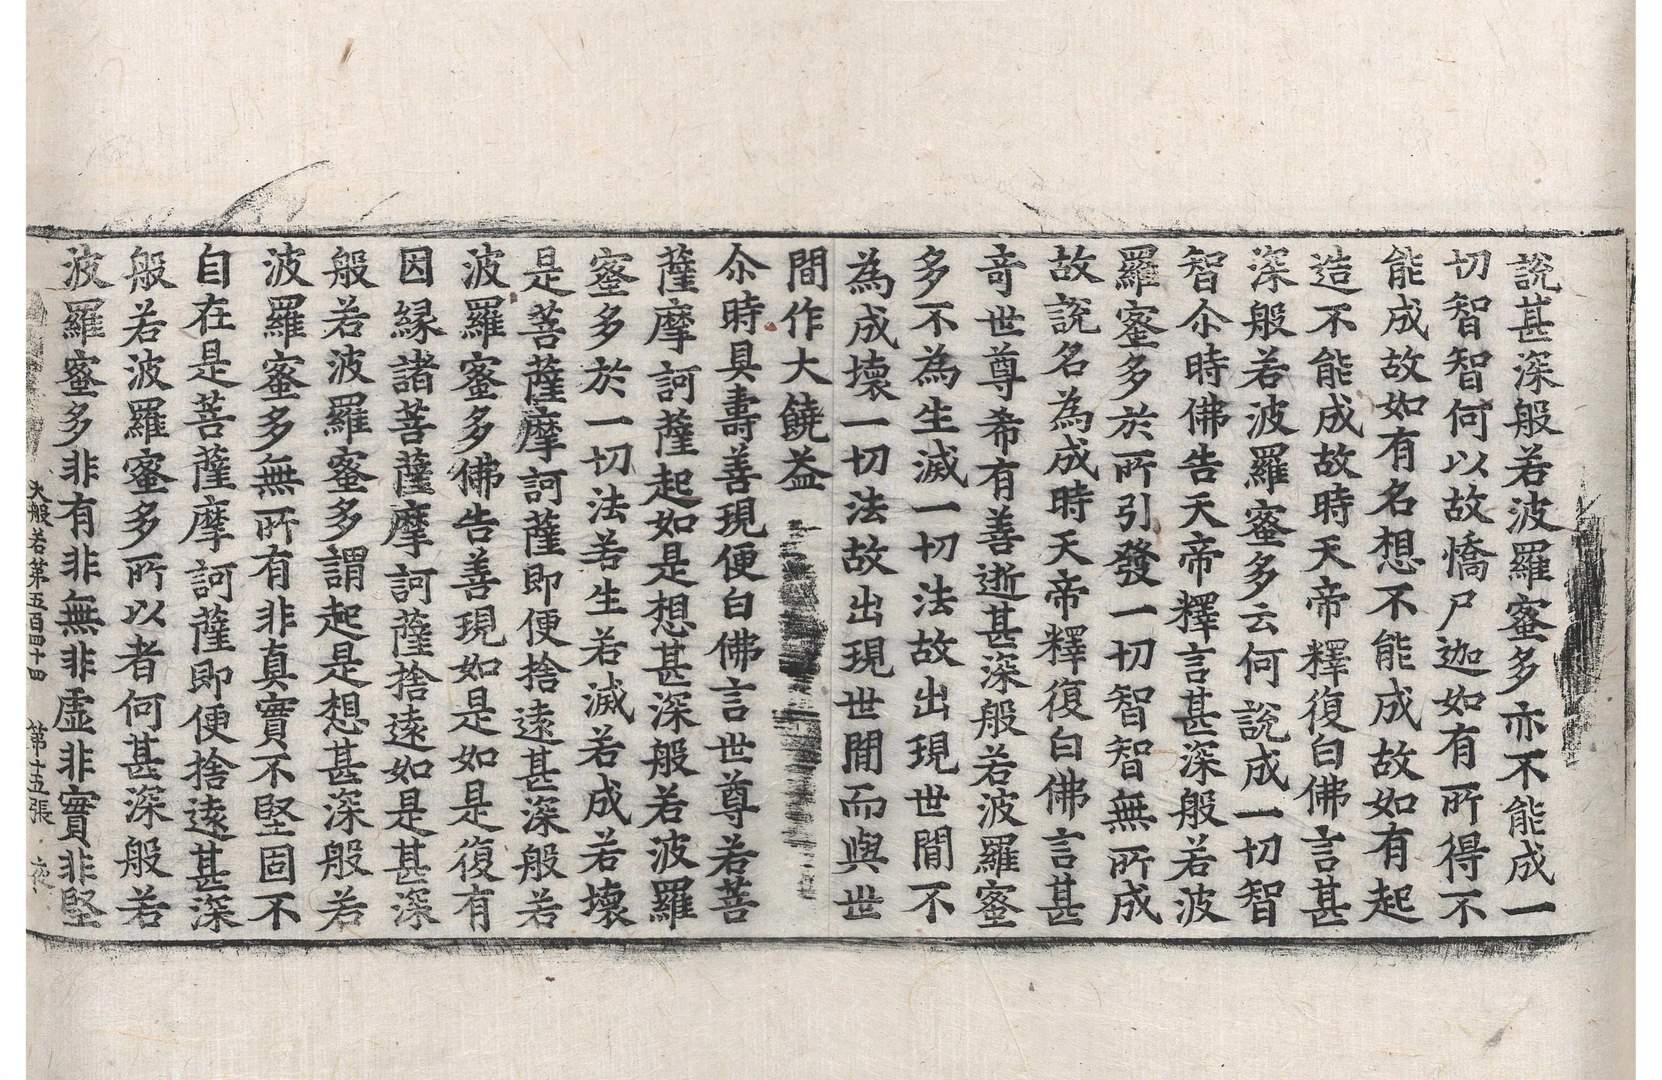 說甚深般若波羅蜜多亦不能成一
切智智何以故憍尸迦如有所得不
能成故如有名想不能成故如有起
造不能成故時天帝釋復白佛言甚
深般若波羅蜜多云何說成一切智
智尒時佛告天帝釋言甚深般若波
羅蜜多於所引發一切智智無所成
故說名為成時天帝釋復白佛言甚
竒世尊希有善逝甚深般若波羅蜜
多不為生滅一切法故出現世間不
為成壞一切法故出現世間而與世
間作大饒益
尒時具壽善現便白佛言世尊若菩
薩摩訶薩起如是想甚深般若波羅
蜜多於一切法若生若滅若成若壞
是菩薩摩訶薩即便捨遠甚深般若
波羅蜜多佛告善現如是如是復有
因緣諸菩薩摩訶薩捨遠如是甚深
般若波羅蜜多謂起是想甚深般若
波羅蜜多無所有非真實不堅固不
自在是菩薩摩訶薩即便捨遠甚深
般若波羅蜜多所以者何甚深般若
波羅蜜多非有非無非虛非實非堅
大般若第五百四十四 第十五張